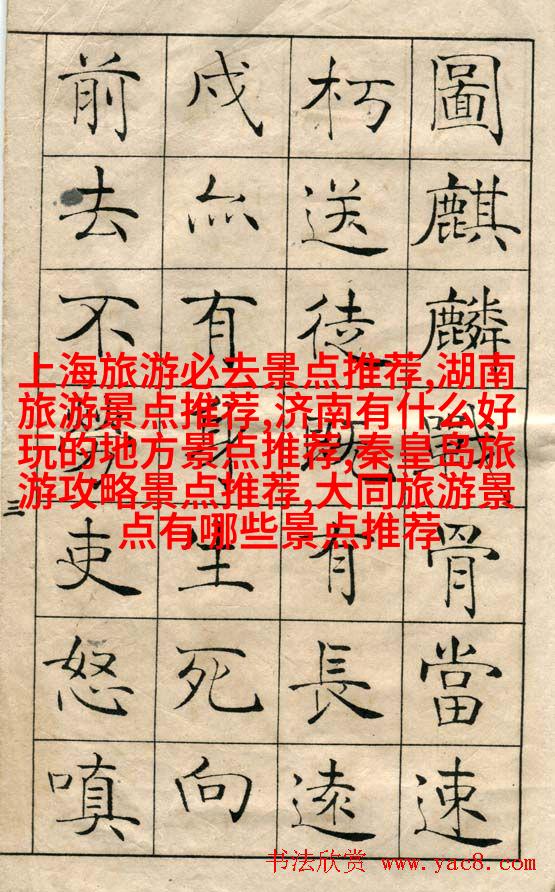 圖麒麟戰骨當速
朽送徒既有長遠
戍亦有身生死向
前去不勞吏怒嗔
三
上海旅游必去景点推荐,湖南
旅游景点推荐,济南有什么好
玩的地方景点推荐,秦皇岛旅
游攻略景点推荐,大同旅游景
点有哪些景点推荐
书法欣赏 www.yac8.com